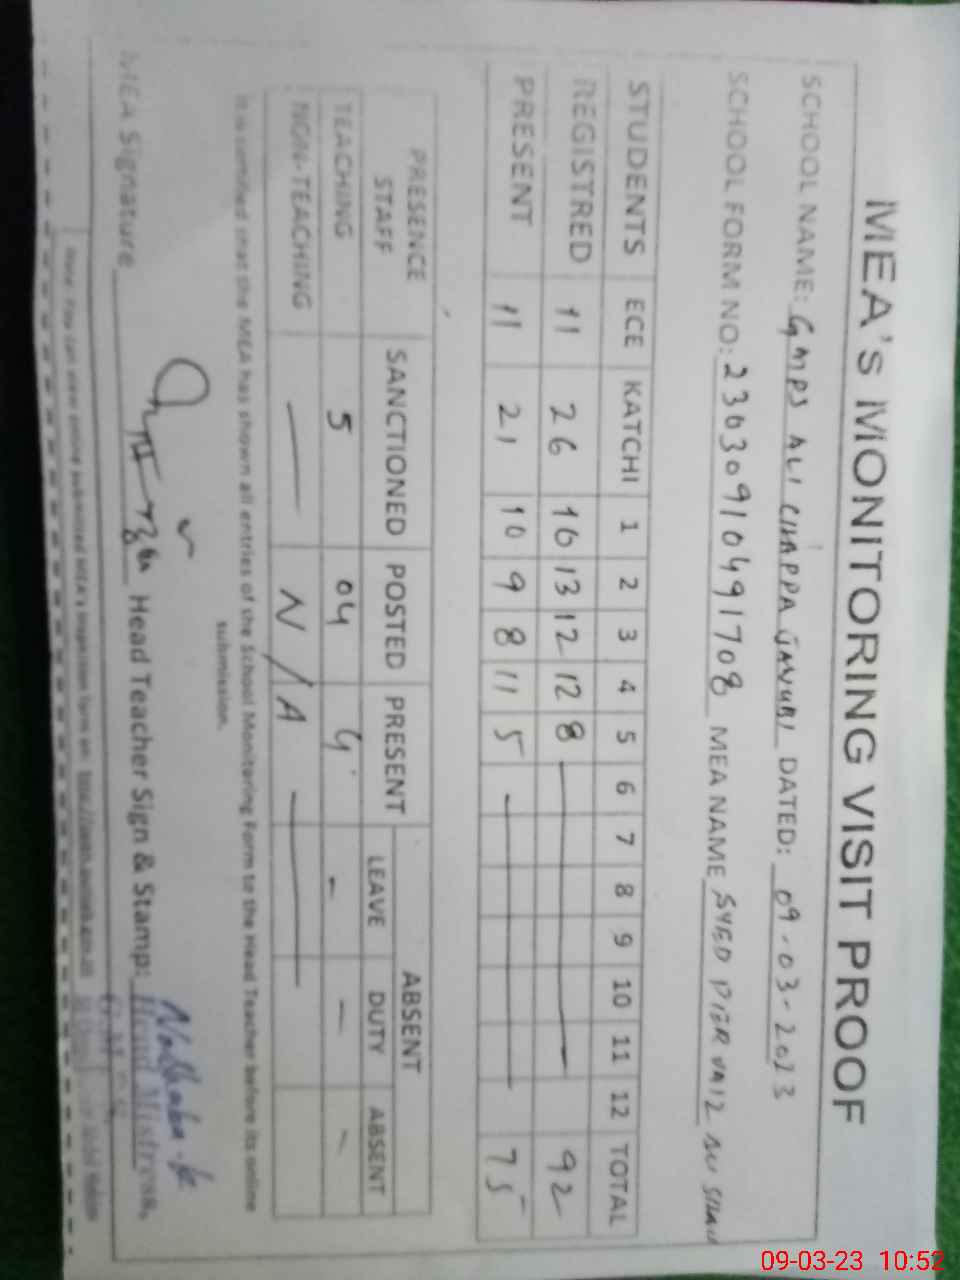 MEA's MONITORING VISIT PROOF
SCHOOL NAME: GMPS ALI CHAPPA DATED: 09-03-2023
SCHOOL FORM NO: 23630910491708 MEA NAME SYED
STUDENTS ECE KATCHI 1 2 3 4 5 6 7 8 9 10 11 12 TOTAL
REGISTRED 11 26 16 13 12 12 8 92
PRESENT 11 21 10 9 8 11 5 75
PRESENCE STAFF SANCTIONED POSTED PRESENT ABSENT
LEAVE DUTY ABSENT
TEACHING 5 04 4 - - -
NON-TEACHING — N/A —
It is certified that the MEA has shown all entries of the School Monitoring Form to the Head Teacher before its online
submission.
MEA Signature Head Teacher Sign & Stamp: Head Mistress,
Note: You can view online submitted MEA's inspection form on:
09-03-23 10:52